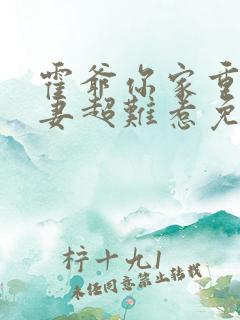 霍爷你家重
妻超难惹免
柠十九1
未经同意禁止转载